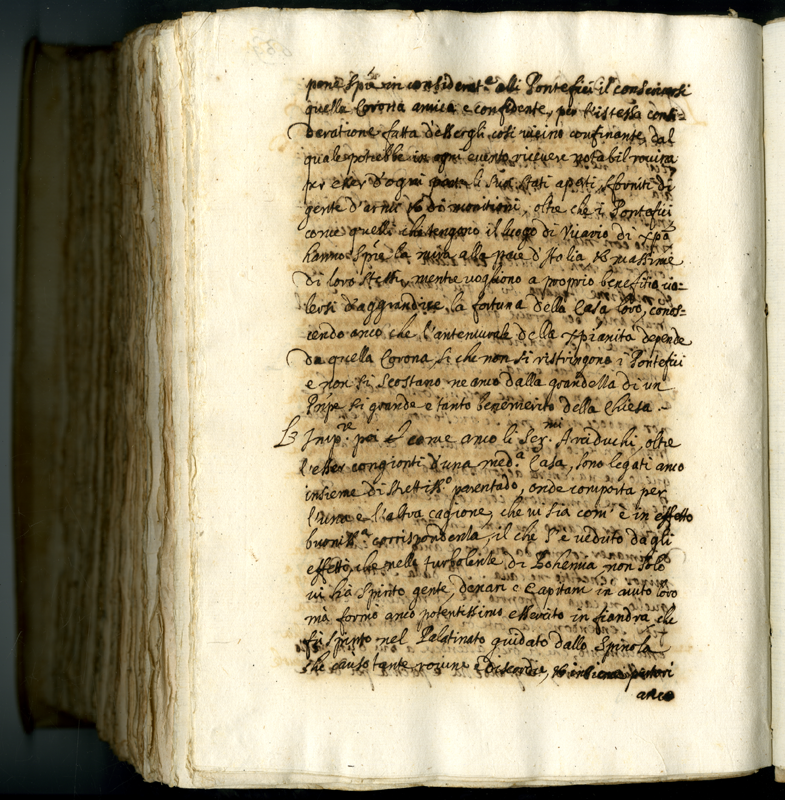 pone sp̃re in considerat.ne alli Pontefici il conservarsi
quella Corona amica e confidente, per l'istessa consi=
deratione fatta d'esser gli così vicino confinante, dal
quale potrebbe in ogni evento ricevere notabil rovina
per esser d'ogni parte li suoi stati aperti, sforniti di
gente d'arme, et di monitioni, oltre che i Pontefici
come quelli che tengono il luogo di Vicario di Xp̃o
hanno sp̃re la mira alla pace d'Italia et massime
di loro stessi, mentre vogliono a proprio benefitio va=
lersi d'aggrandire la fortuna della Casa loro, conos=
cendo anco che l'antemurale della Xp̃ianita depende
da quella Corona, si che non si ristringono i Pontefici
e non si scostano ne anco dalla grandezza di un
Prñpe si grande e tanto benemerito della Chiesa.
L'Imp.re poi come anco li Ser.mi Arciduchi, oltre
l'esser congionti d'una med.a Casa, sono legati anco
insieme di strettiss.o parentado, onde comporta per
l'una e l'altra cagione, che vi sia com' è in effetto
buoniss.a corrispondenza, il che s'è veduto dagli
effetti, che nelle turbolenze di Bohemia non solo
vi hà spinto gente, denari e Capitani in aiuto loro
mà formò anco potentissimo essercito in fiandra che
fù spinto nel Palatinato guidato dallo Spinola
che causò tante rovine e discordie, et insieme
anco